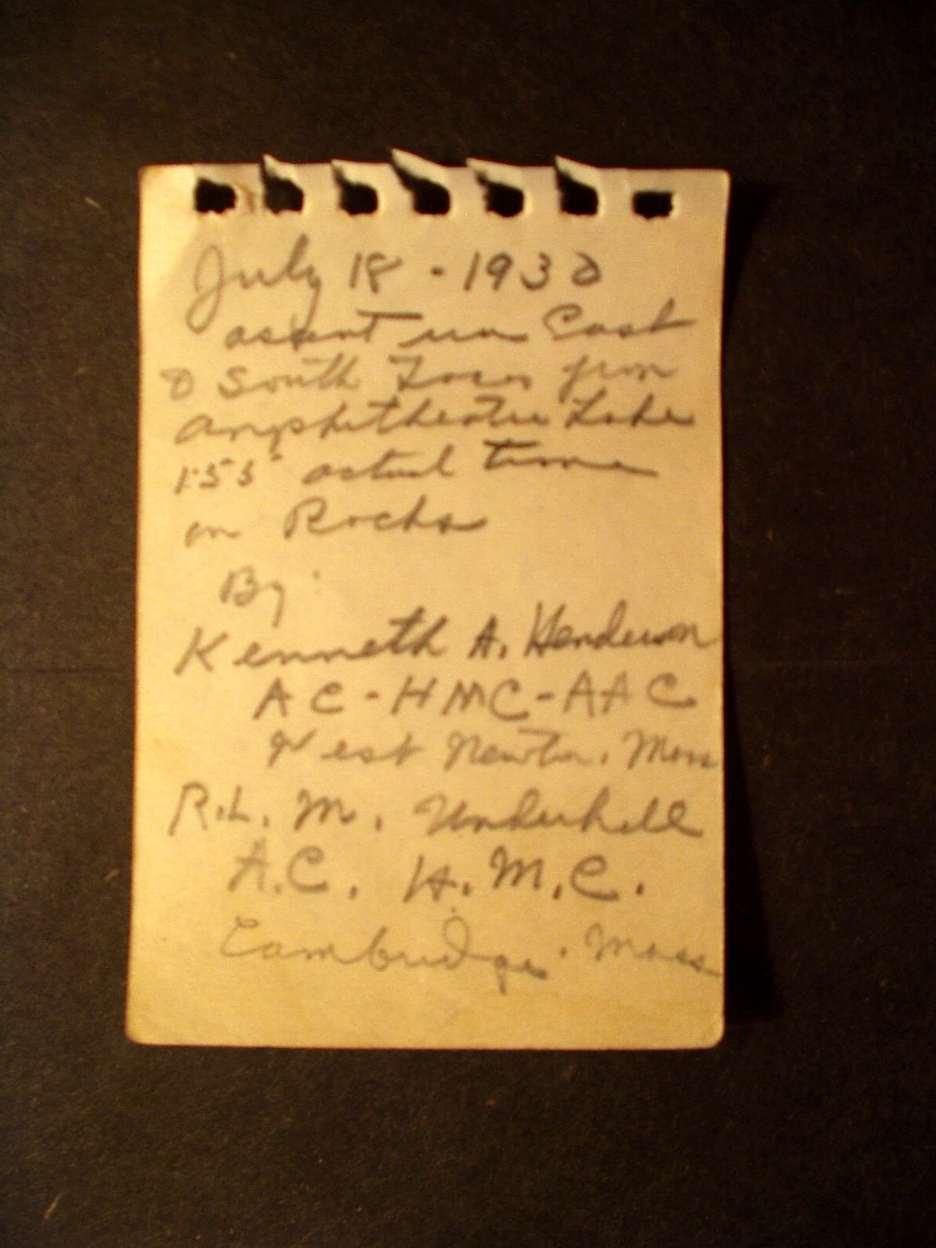 July 18 - 1930
ascent via East
& South Faces from
Amphitheater Lake
1:55 actual time
on Rocks
By
Kenneth A. Henderson
AC-HMC-AAC
West Newton. Mass
R.L.M. Underhill
A.C. H.M.C.
Cambridge. Mass